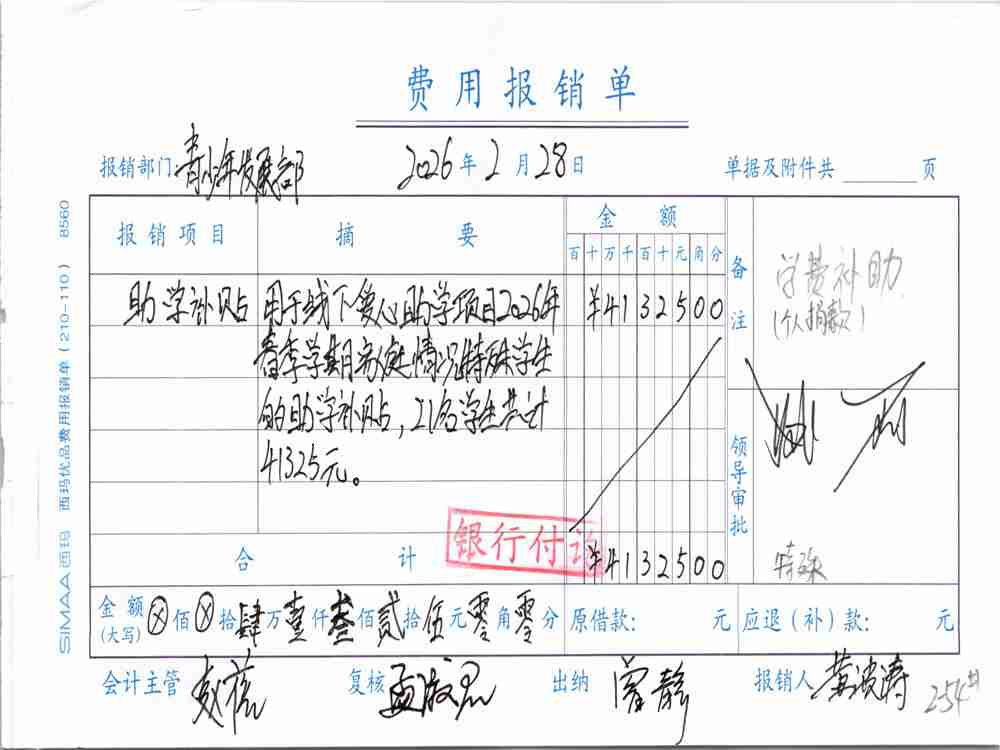 费用报销单
报销部门:青少年发展部 2026年2月28日 单据及附件共 页
报销项目 摘要 金额 备注
百十万千百十元角分
助学补贴 用于线下爱心助学项目2026年 ¥4132500 学费补助
春季学期家庭情况特殊学生 (个人捐款)
的助学补贴,21名学生共计
41325元。
领导审批
特殊
合计 银行付讫 ¥4132500
金额(大写) ⊗佰⊗拾肆万壹仟叁佰贰拾伍元零角零分 原借款: 元 应退(补)款: 元
会计主管 复核 出纳 曾静 报销人 黄波涛
254
SIMAA西玛 西玛优品费用报销单(210-110) 8560